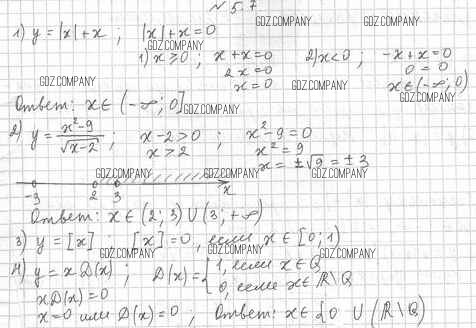 № 5.7
GDZ.COMPANY GDZ.COMPANY
1) y = |x| + x ; |x| + x = 0
GDZ.COMPANY
1) x ≥ 0 ; x + x = 0 2) x < 0 ; -x + x = 0
2x = 0 0 = 0
GDZ.COMPANY x = 0 GDZ.COMPANY x ∈ (-∞; 0)
GDZ.COMPANY
Ответ: x ∈ (-∞; 0] GDZ.COMPANY
2) y = x²-9 / √x-2 ; x - 2 > 0 ; x² - 9 = 0
x > 2 x² = 9
x = ±√9 = ±3
GDZ.COMPANY GDZ.COMPANY GDZ.COMPANY
-3 2 3 x
Ответ: x ∈ (2; 3) ∪ (3; +∞)
3) y = [x] ; [x] = 0, если x ∈ [0; 1)
GDZ.COMPANY GDZ.COMPANY GDZ.COMPANY
4) y = x D(x) ; D(x) = { 1, если x ∈ Q
0, если x ∈ R\Q
x D(x) = 0
x = 0 или D(x) = 0 , Ответ: x ∈ {0 ∪ (R\Q)